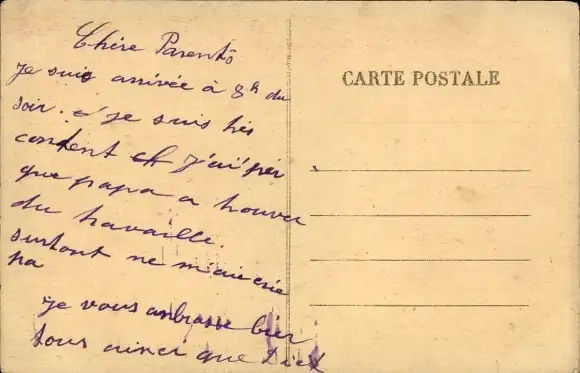 Chère Parents
Je suis arrivée à 8h du
soir. je suis très
content et J'ai
que papa a trouver
du travaille.
surtout ne
pa
Je vous anbrasse bien
tous ainci que
CARTE POSTALE